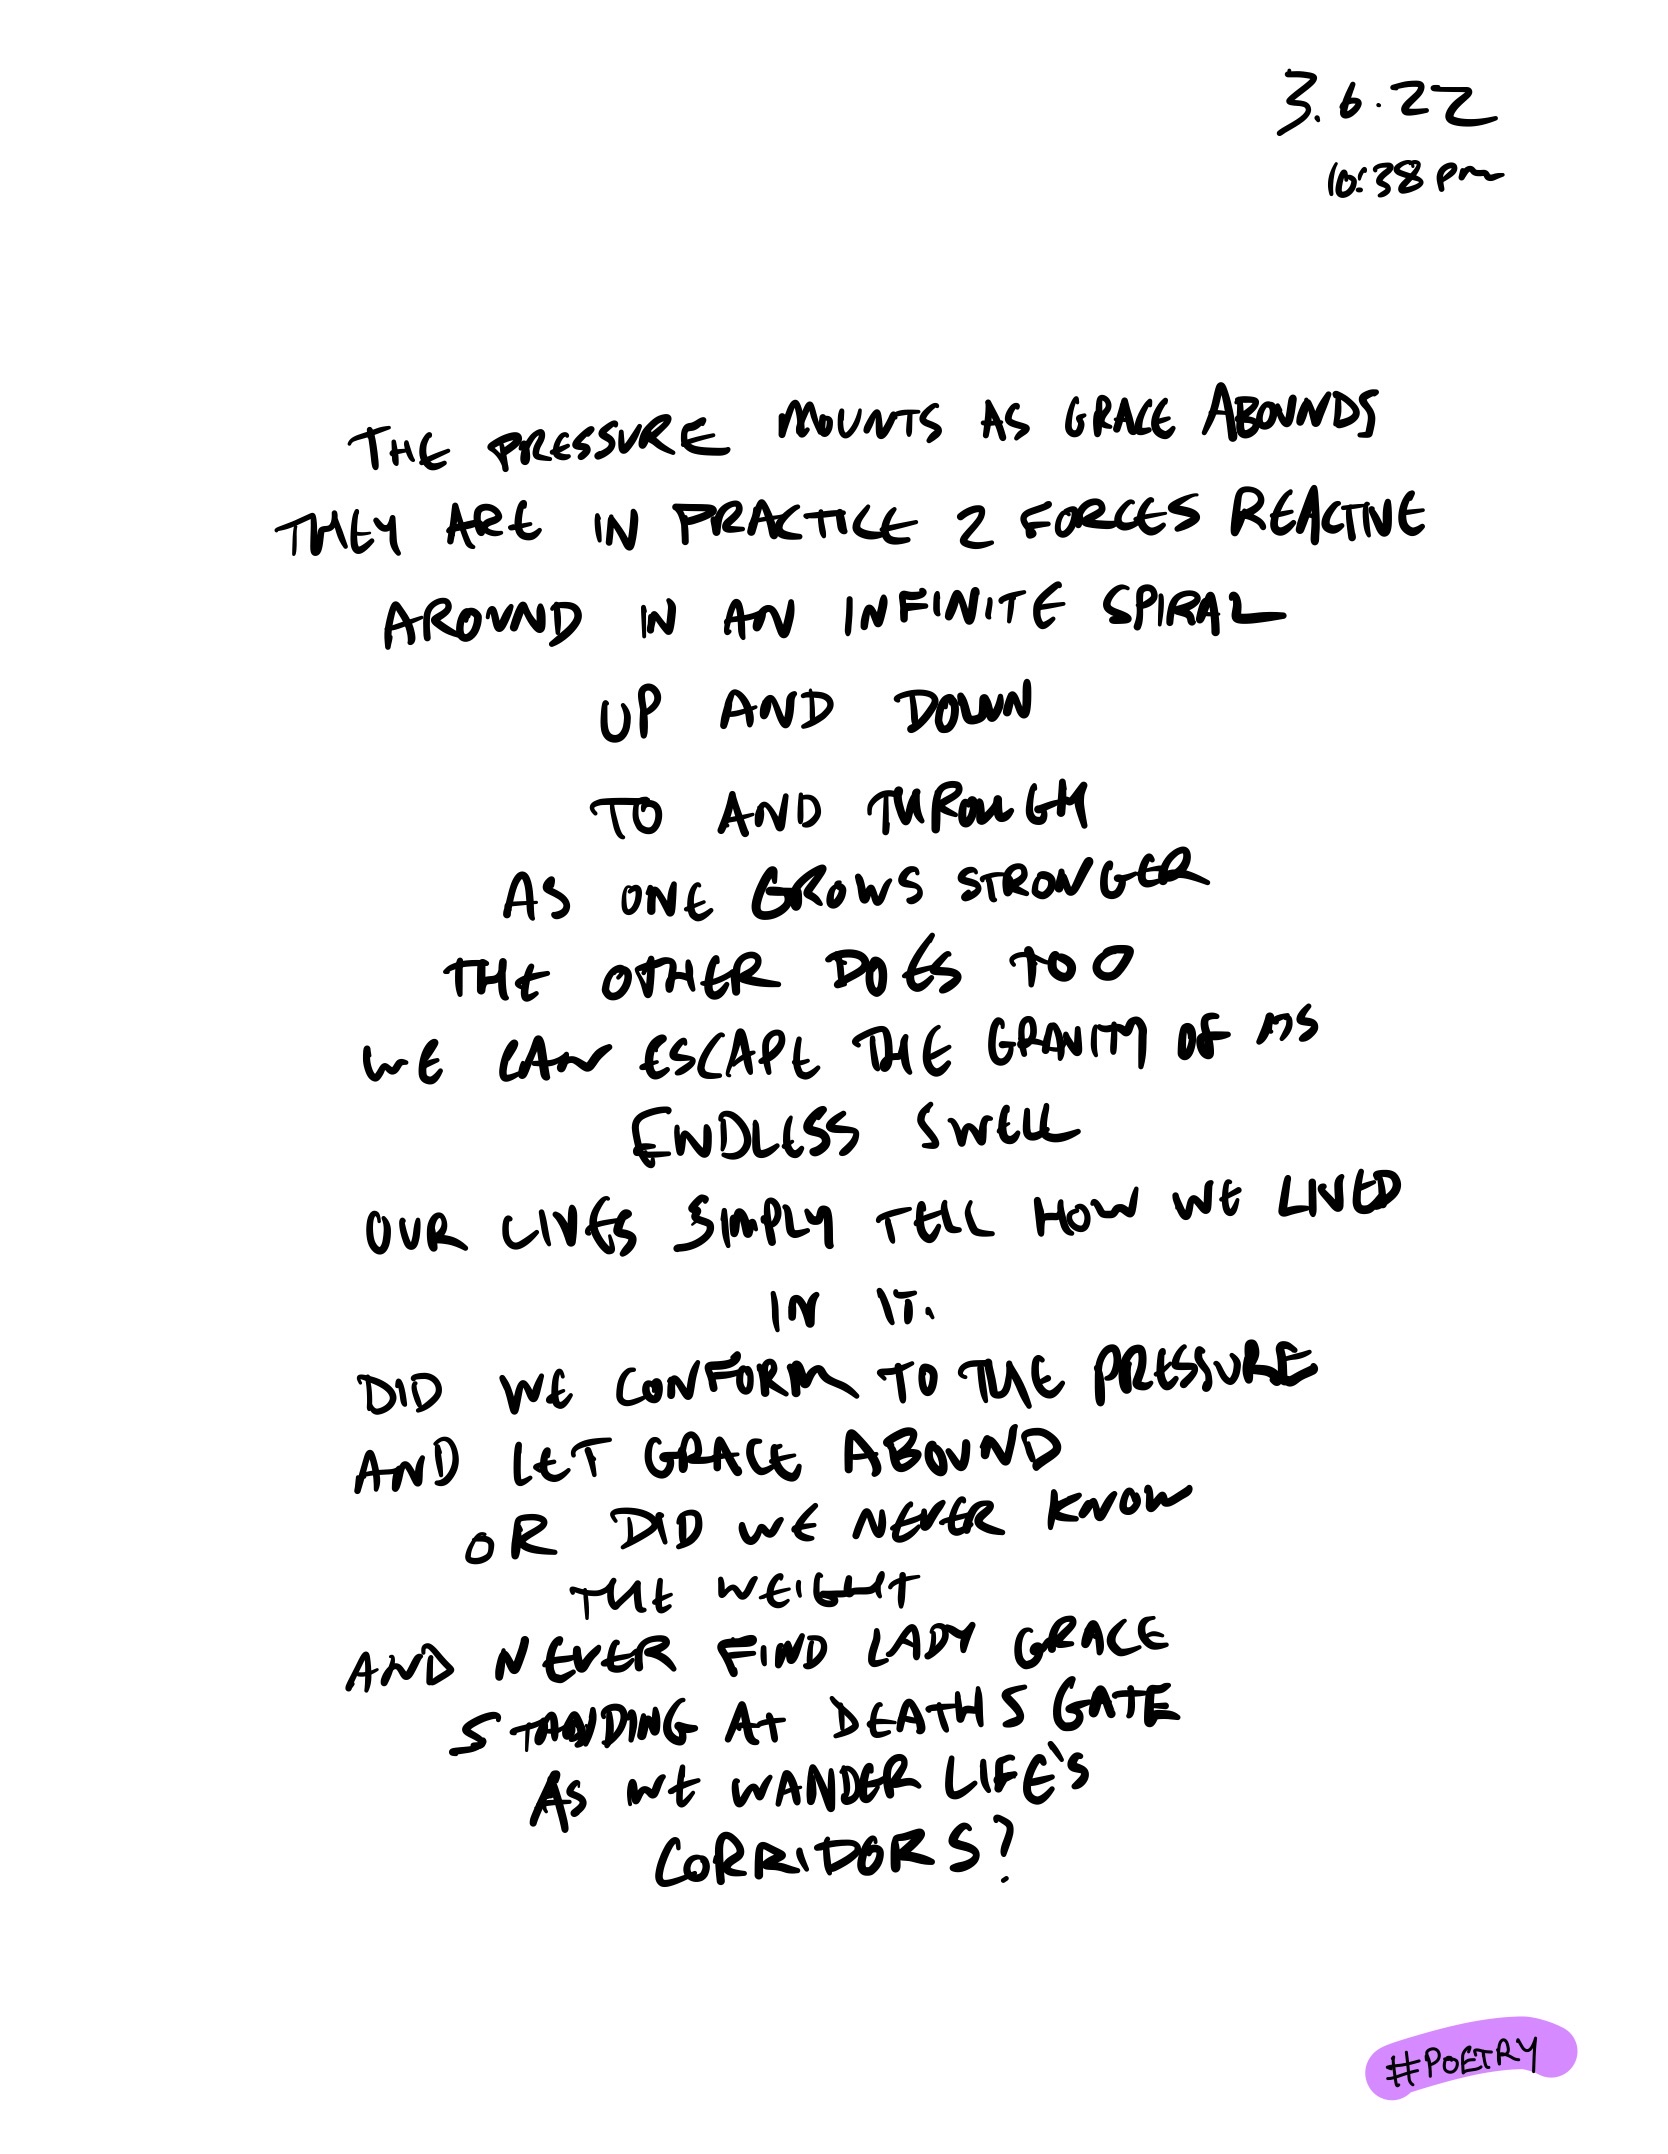 3.6.22
10:38 pm
THE PRESSURE MOUNTS AS GRACE ABOUNDS
THEY ARE IN PRACTICE 2 FORCES REACTIVE
AROUND IN AN INFINITE SPIRAL
UP AND DOWN
TO AND THROUGH
AS ONE GROWS STRONGER
THE OTHER DOES TOO
WE CAN ESCAPE THE GRAVITY OF ITS
ENDLESS SWELL
OUR LIVES SIMPLY TELL HOW WE LIVED
IN IT.
DID WE CONFORM TO THE PRESSURE
AND LET GRACE ABOUND
OR DID WE NEVER KNOW
THE WEIGHT
AND NEVER FIND LADY GRACE
STANDING AT DEATHS GATE
AS WE WANDER LIFE'S
CORRIDORS?
#POETRY